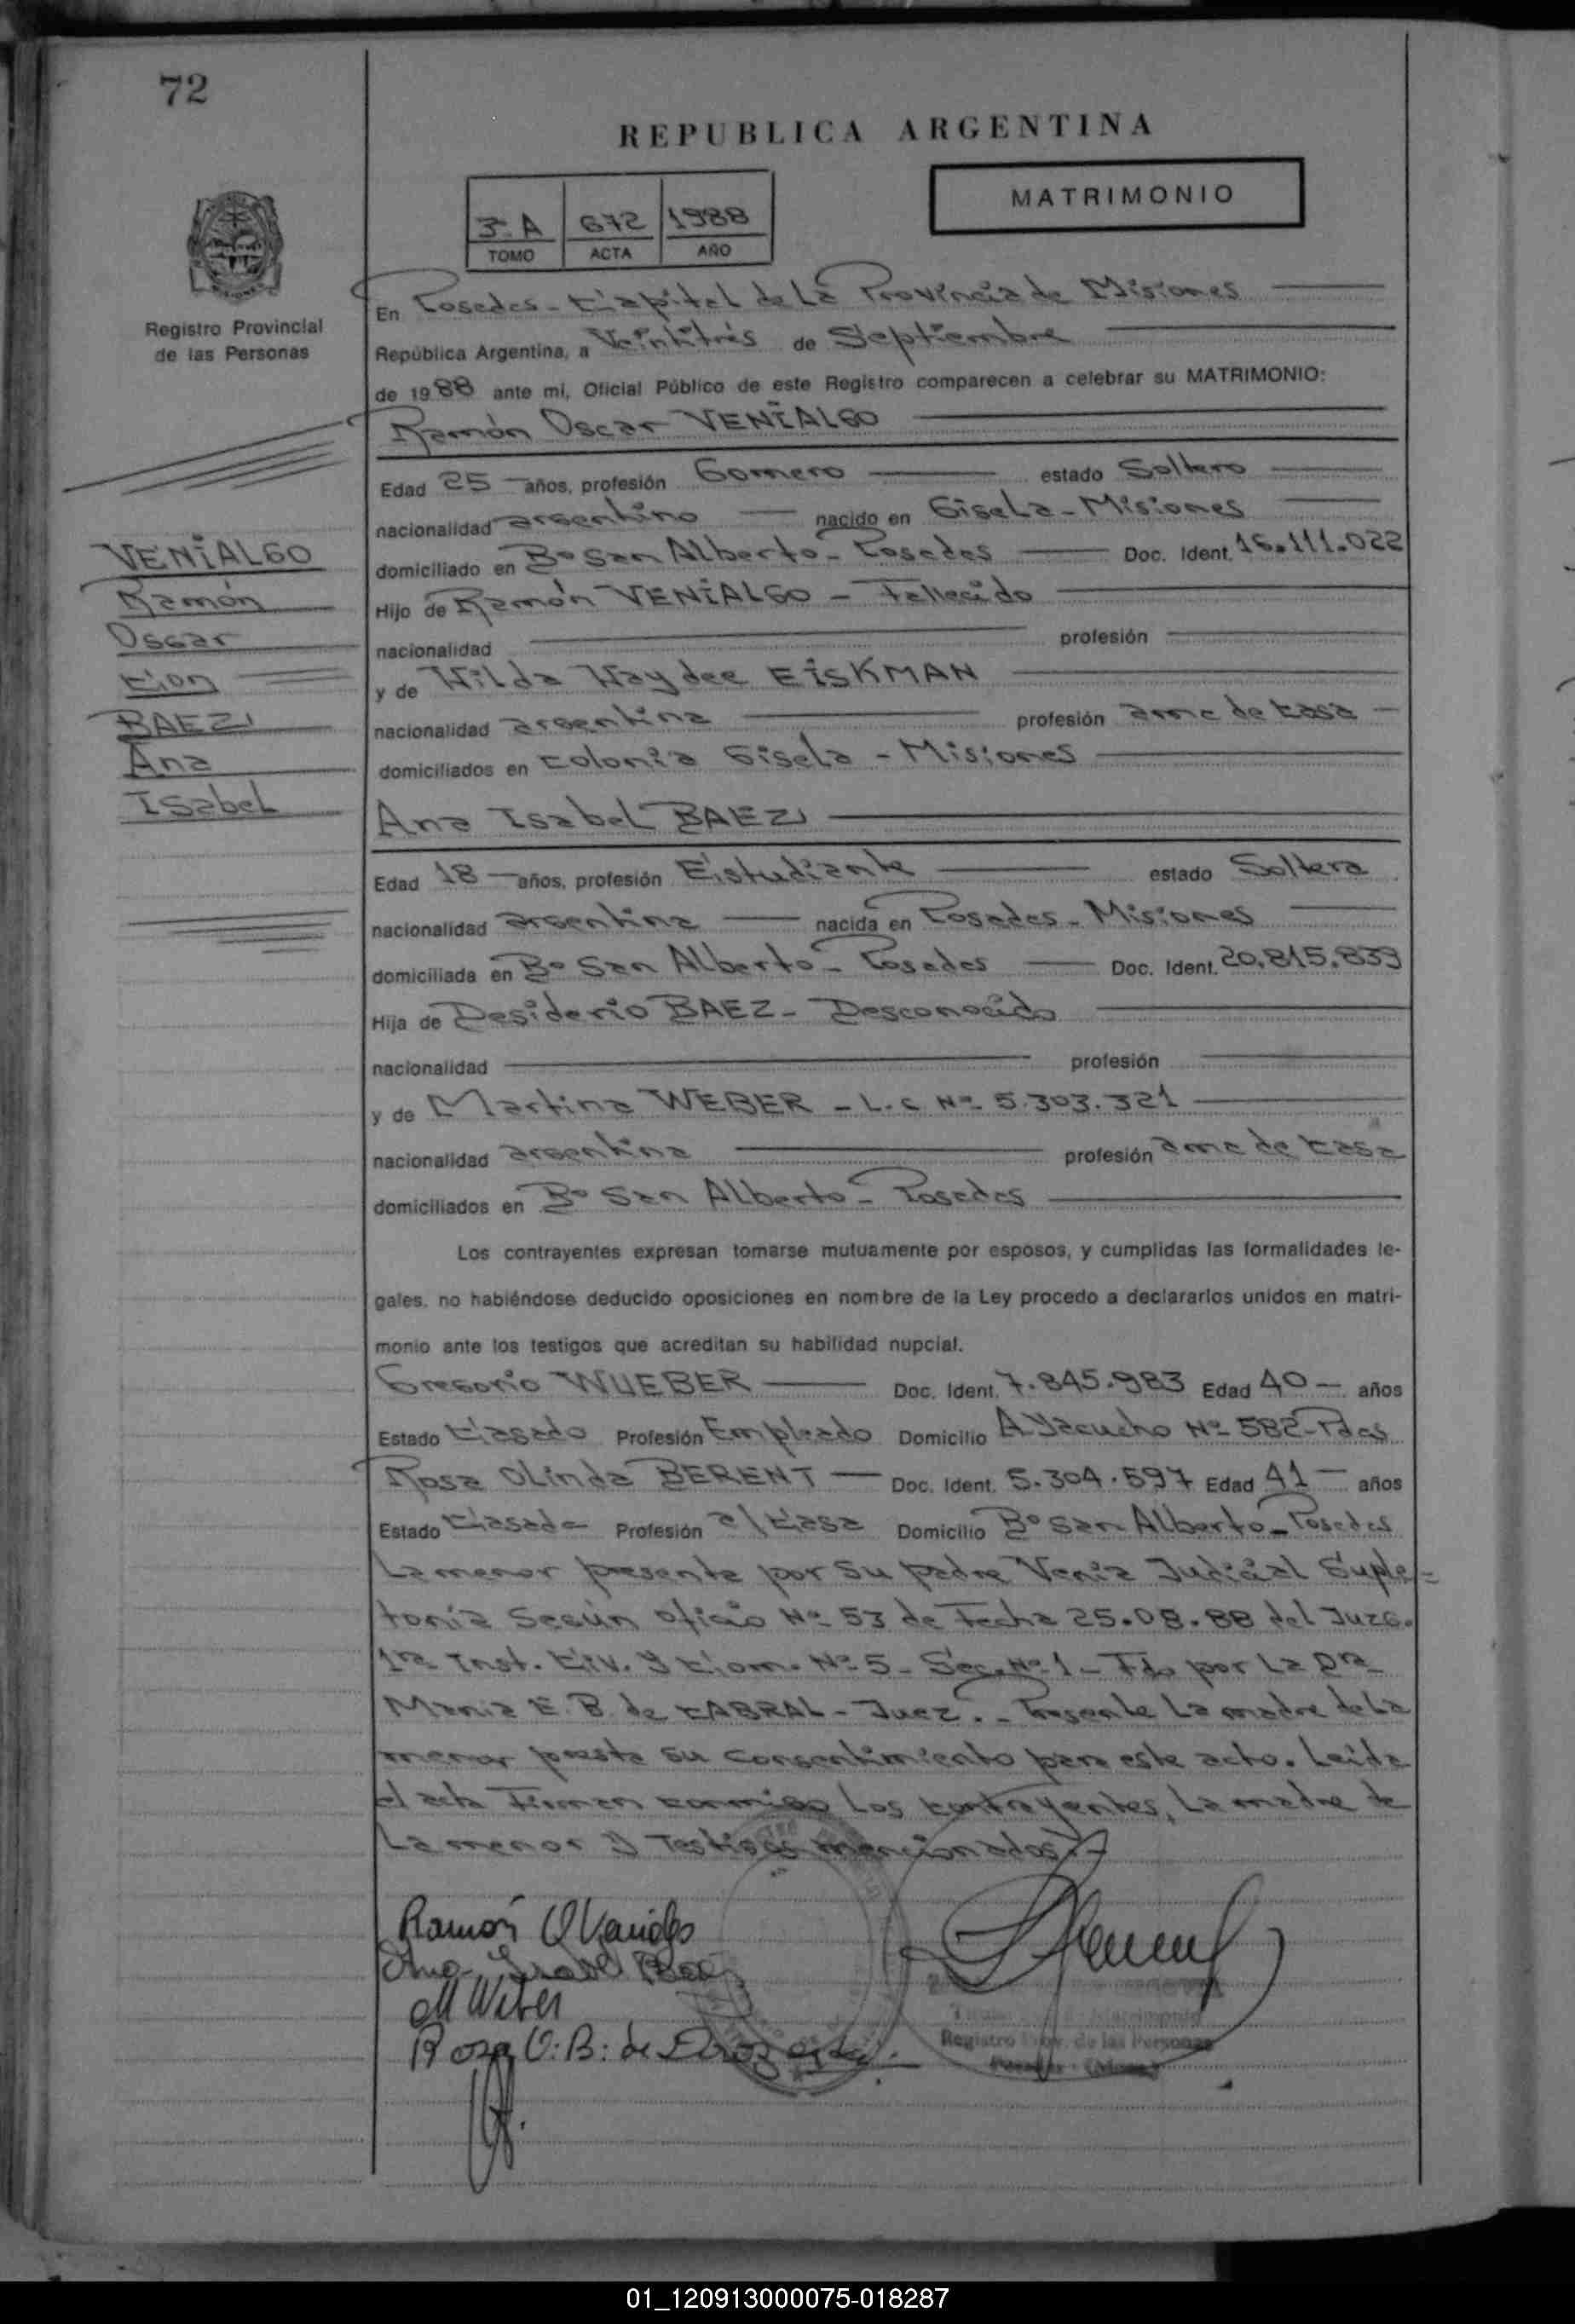 72
REPUBLICA ARGENTINA
MATRIMONIO
3º A 672 1988
TOMO ACTA AÑO
Registro Provincial
de las Personas
En Posadas - Capital de La Provincia de Misiones
República Argentina, a Veintitrés de Septiembre
de 1988 ante mi, Oficial Público de este Registro comparecen a celebrar su MATRIMONIO:
Ramón Oscar VENIALGO
Edad 25 años, profesión Gomero estado Soltero
nacionalidad argentino nacido en Gisela - Misiones
domiciliado en Bº San Alberto - Posadas Doc. Ident. 16.111.022
Hijo de Ramón VENIALGO - Fallecido
nacionalidad profesión
y de Hilda Haydee EISKMAN
nacionalidad argentina profesión ama de casa
domiciliados en Colonia Gisela - Misiones
VENIALGO
Ramón
Oscar
Con
BAEZ
Ana
Isabel
Ana Isabel BAEZ
Edad 18 años, profesión Estudiante estado Soltera
nacionalidad argentina nacida en Posadas - Misiones
domiciliada en Bº San Alberto - Posadas Doc. Ident. 20.815.839
Hija de Desiderio BAEZ - Desconocido
nacionalidad profesión
y de Martina WEBER - L.C Nº 5.303.321
nacionalidad argentina profesión ama de casa
domiciliados en Bº San Alberto - Posadas
Los contrayentes expresan tomarse mutuamente por esposos, y cumplidas las formalidades le-
gales. no habiéndose deducido oposiciones en nombre de la Ley procedo a declararlos unidos en matri-
monio ante los testigos que acreditan su habilidad nupcial.
Gregorio WUEBER Doc. Ident. 7.845.983 Edad 40 años
Estado Casado Profesión Empleado Domicilio Ayacucho Nº 582 - Pdas
Rosa Olinda BERENT Doc. Ident. 5.304.597 Edad 41 años
Estado Casada Profesión a/Casa Domicilio Bº San Alberto - Posadas
La menor presenta por su padre Venia Judicial Suple=
toria Según oficio Nº 53 de Fecha 25.08.88 del Juzg.
1ra Inst. Civ. y Com. Nº 5 - Sec. Nº 1 - Fdo por La Dra
Maria E. B. de CABRAL - Juez. - Presente La madre de La
menor presta su consentimiento para este acto. Leida
el acta Firman conmigo Los contrayentes, La madre de
La menor y Testigos mencionados
Ramón O Venialgo
Ana Isabel Baez
M Weber
Rosa O. B. de
Registro Prov. de las Personas
01_120913000075-018287